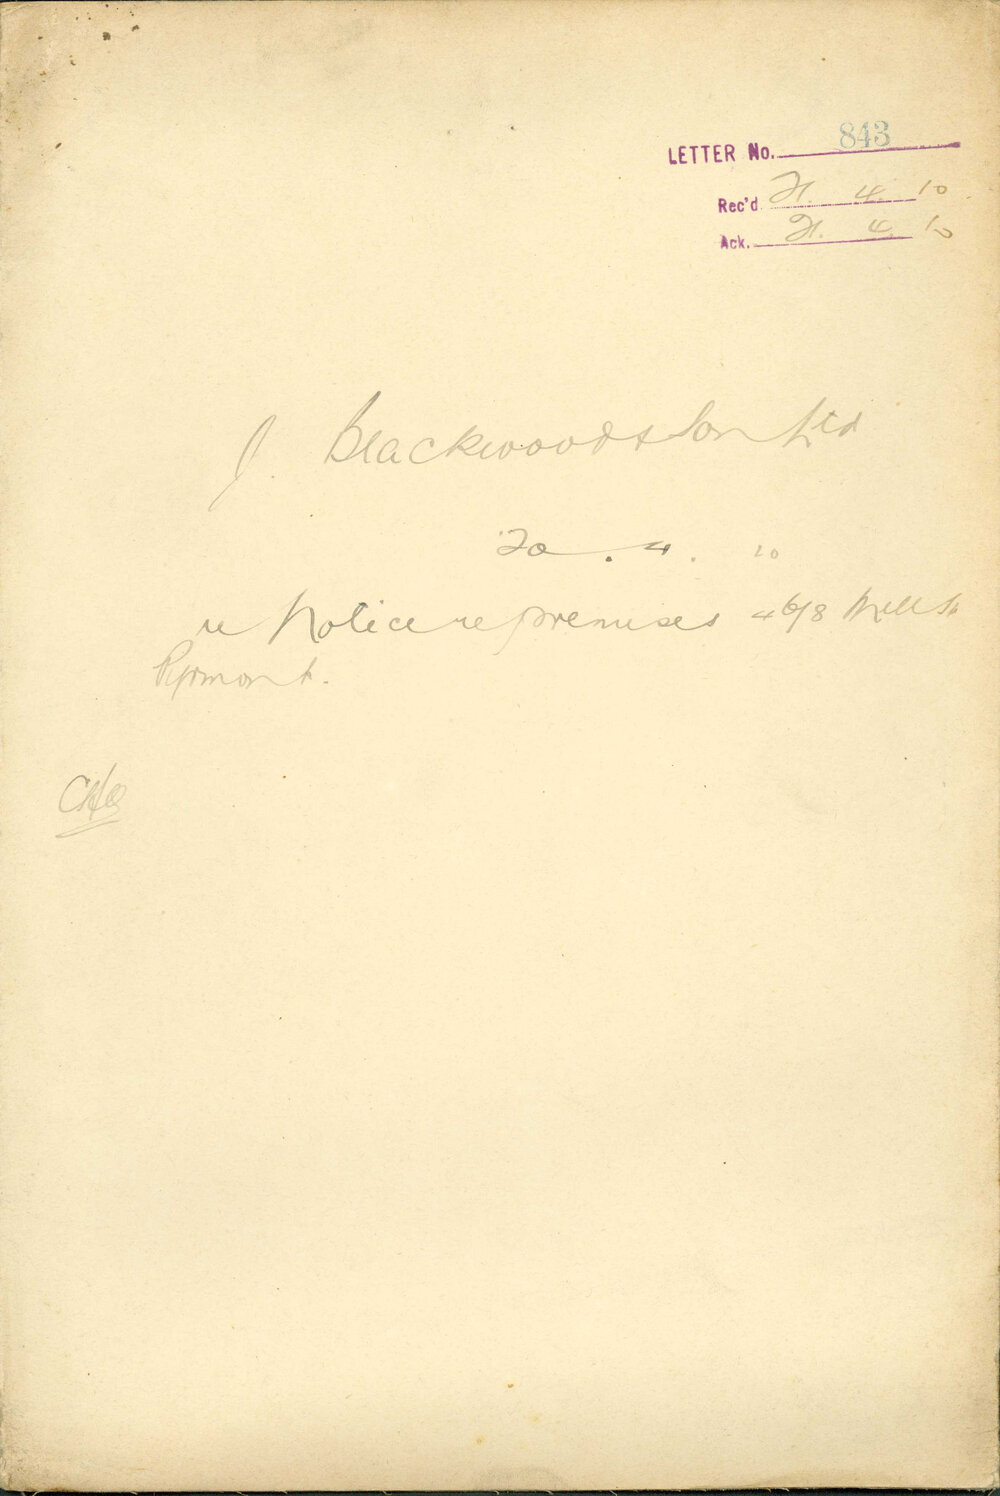 LETTER No. 843
Rec'd 21. 4. 10
Ack. 21. 4. 10
J. Blackwood & Son Ltd
20. 4. 10
re Notice re premises 46/8 Mill St
Pyrmont.